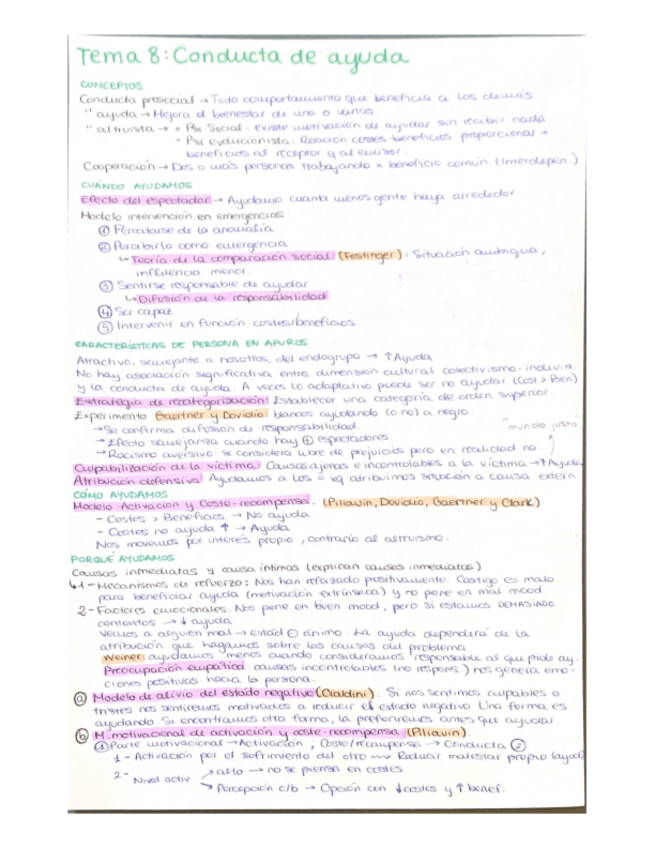 Tema 8: Conducta de ayuda
CONCEPTOS
Conducta prosocial → Todo comportamiento que beneficia a los demás.
" ayuda → Mejora el bienestar de uno o varios
" altruista → • Psi Social: existe motivación de ayudar sin recibir nada
• Psi evolucionista. Relación costes beneficios proporcional →
beneficios al receptor y al emisor.
Cooperación → Dos o más personas trabajando x beneficio común. (Interdepen.)
CUÁNDO AYUDAMOS
Efecto del espectador → Ayudamos cuanta menos gente haya alrededor.
Modelo intervención en emergencias:
① Percatarse de la anomalía
② Percibirlo como emergencia
↳ Teoría de la comparación social (Festinger): Situación ambigua,
influencia menor.
③ Sentirse responsable de ayudar
↳ Difusión de la responsabilidad
④ Ser capaz
⑤ Intervenir en función costes/beneficios.
CARACTERÍSTICAS DE PERSONA EN APUROS
Atractivo, semejante a nosotros, del endogrupo → ↑ Ayuda
No hay asociación significativa entre dimensión cultural colectivismo-individ.
y la conducta de ayuda. A veces lo adaptativo puede ser no ayudar (Cost > Ben)
Estrategia de recategorización: Establecer una categoría de orden superior.
Experimento Gaertner y Dovidio: blancos ayudando (o no) a negro.
→ Se confirma difusión de responsabilidad.
"mundo justo"
→ Efecto semejanza cuando hay ⊕ espectadores.
→ Racismo aversivo: se considera libre de prejuicios pero en realidad no.
Culpabilización de la víctima: Causas ajenas e incontrolables a la víctima → ↑ Ayuda
Atribución defensiva: Ayudamos a los = xq atribuimos situación a causa extern
CÓMO AYUDAMOS
Modelo Activación y Coste-recompensa. (Piliavin, Dovidio, Gaertner y Clark)
- Costes > Beneficios → No ayuda
- Costes no ayuda ↑ → Ayuda
Nos movemos por interés propio, contrario al altruismo.
PORQUÉ AYUDAMOS
Causas inmediatas y causa íntimas (explican causas inmediatas)
↳ 1- Mecanismos de refuerzo: Nos han reforzado positivamente. Castigo es malo
para beneficiar ayuda (motivación extrínseca) y no pone en mal mood.
2- Factores emocionales: Nos pone en buen mood, pero si estamos DEMASIADO
contentos → ↓ ayuda
Vemos a alguien mal → estad ⊖ ánimo. La ayuda dependerá de la
atribución que hagamos sobre las causas del problema
Weiner: ayudamos menos cuando consideramos responsable al que pide ay.
Preocupación empática: causas incontrolables (no respons) nos genera emo-
ciones positivas hacia la persona.
ⓐ Modelo de alivio del estado negativo (Cialdini). Si nos sentimos culpables o
tristes nos sentiremos motivados a reducir el estado negativo. Una forma es
ayudando. Si encontramos otra forma, la preferiremos antes que ayudar.
ⓑ M. motivacional de activación y coste-recompensa (Piliavin)
① Parte motivacional → Activación, Coste/recompensa → Conducta ②
1- Activación por el sufrimiento del otro → Reducir malestar propio (ayud)
2- Nivel activ ↗ alto → no se piensa en costes
↘ Percepción c/b → Opción con ↓ costes y ↑ benef.